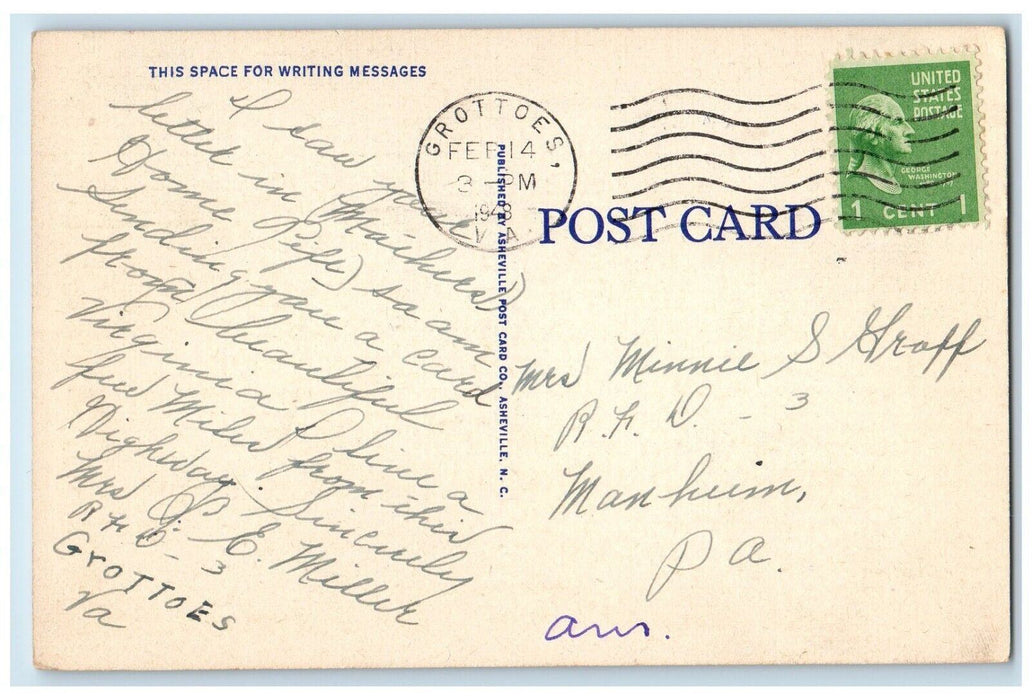 THIS SPACE FOR WRITING MESSAGES
I saw your
letter in (Mother's
Home Life) so am
Sending you a card
from beautiful
Virginia I live a
few Miles from this
Highway. Sincerely
Mrs E. Miller
R F D - 3
GROTTOES
Va
PUBLISHED BY ASHEVILLE POST CARD CO., ASHEVILLE, N. C.
GROTTOES,
FEB 14
3 - PM
1948
VA
UNITED
STATES
POSTAGE
GEORGE
WASHINGTON
1 CENT 1
POST CARD
Mrs Minnie S Groff
R. F. D. - 3
Manheim,
Pa.
ans.